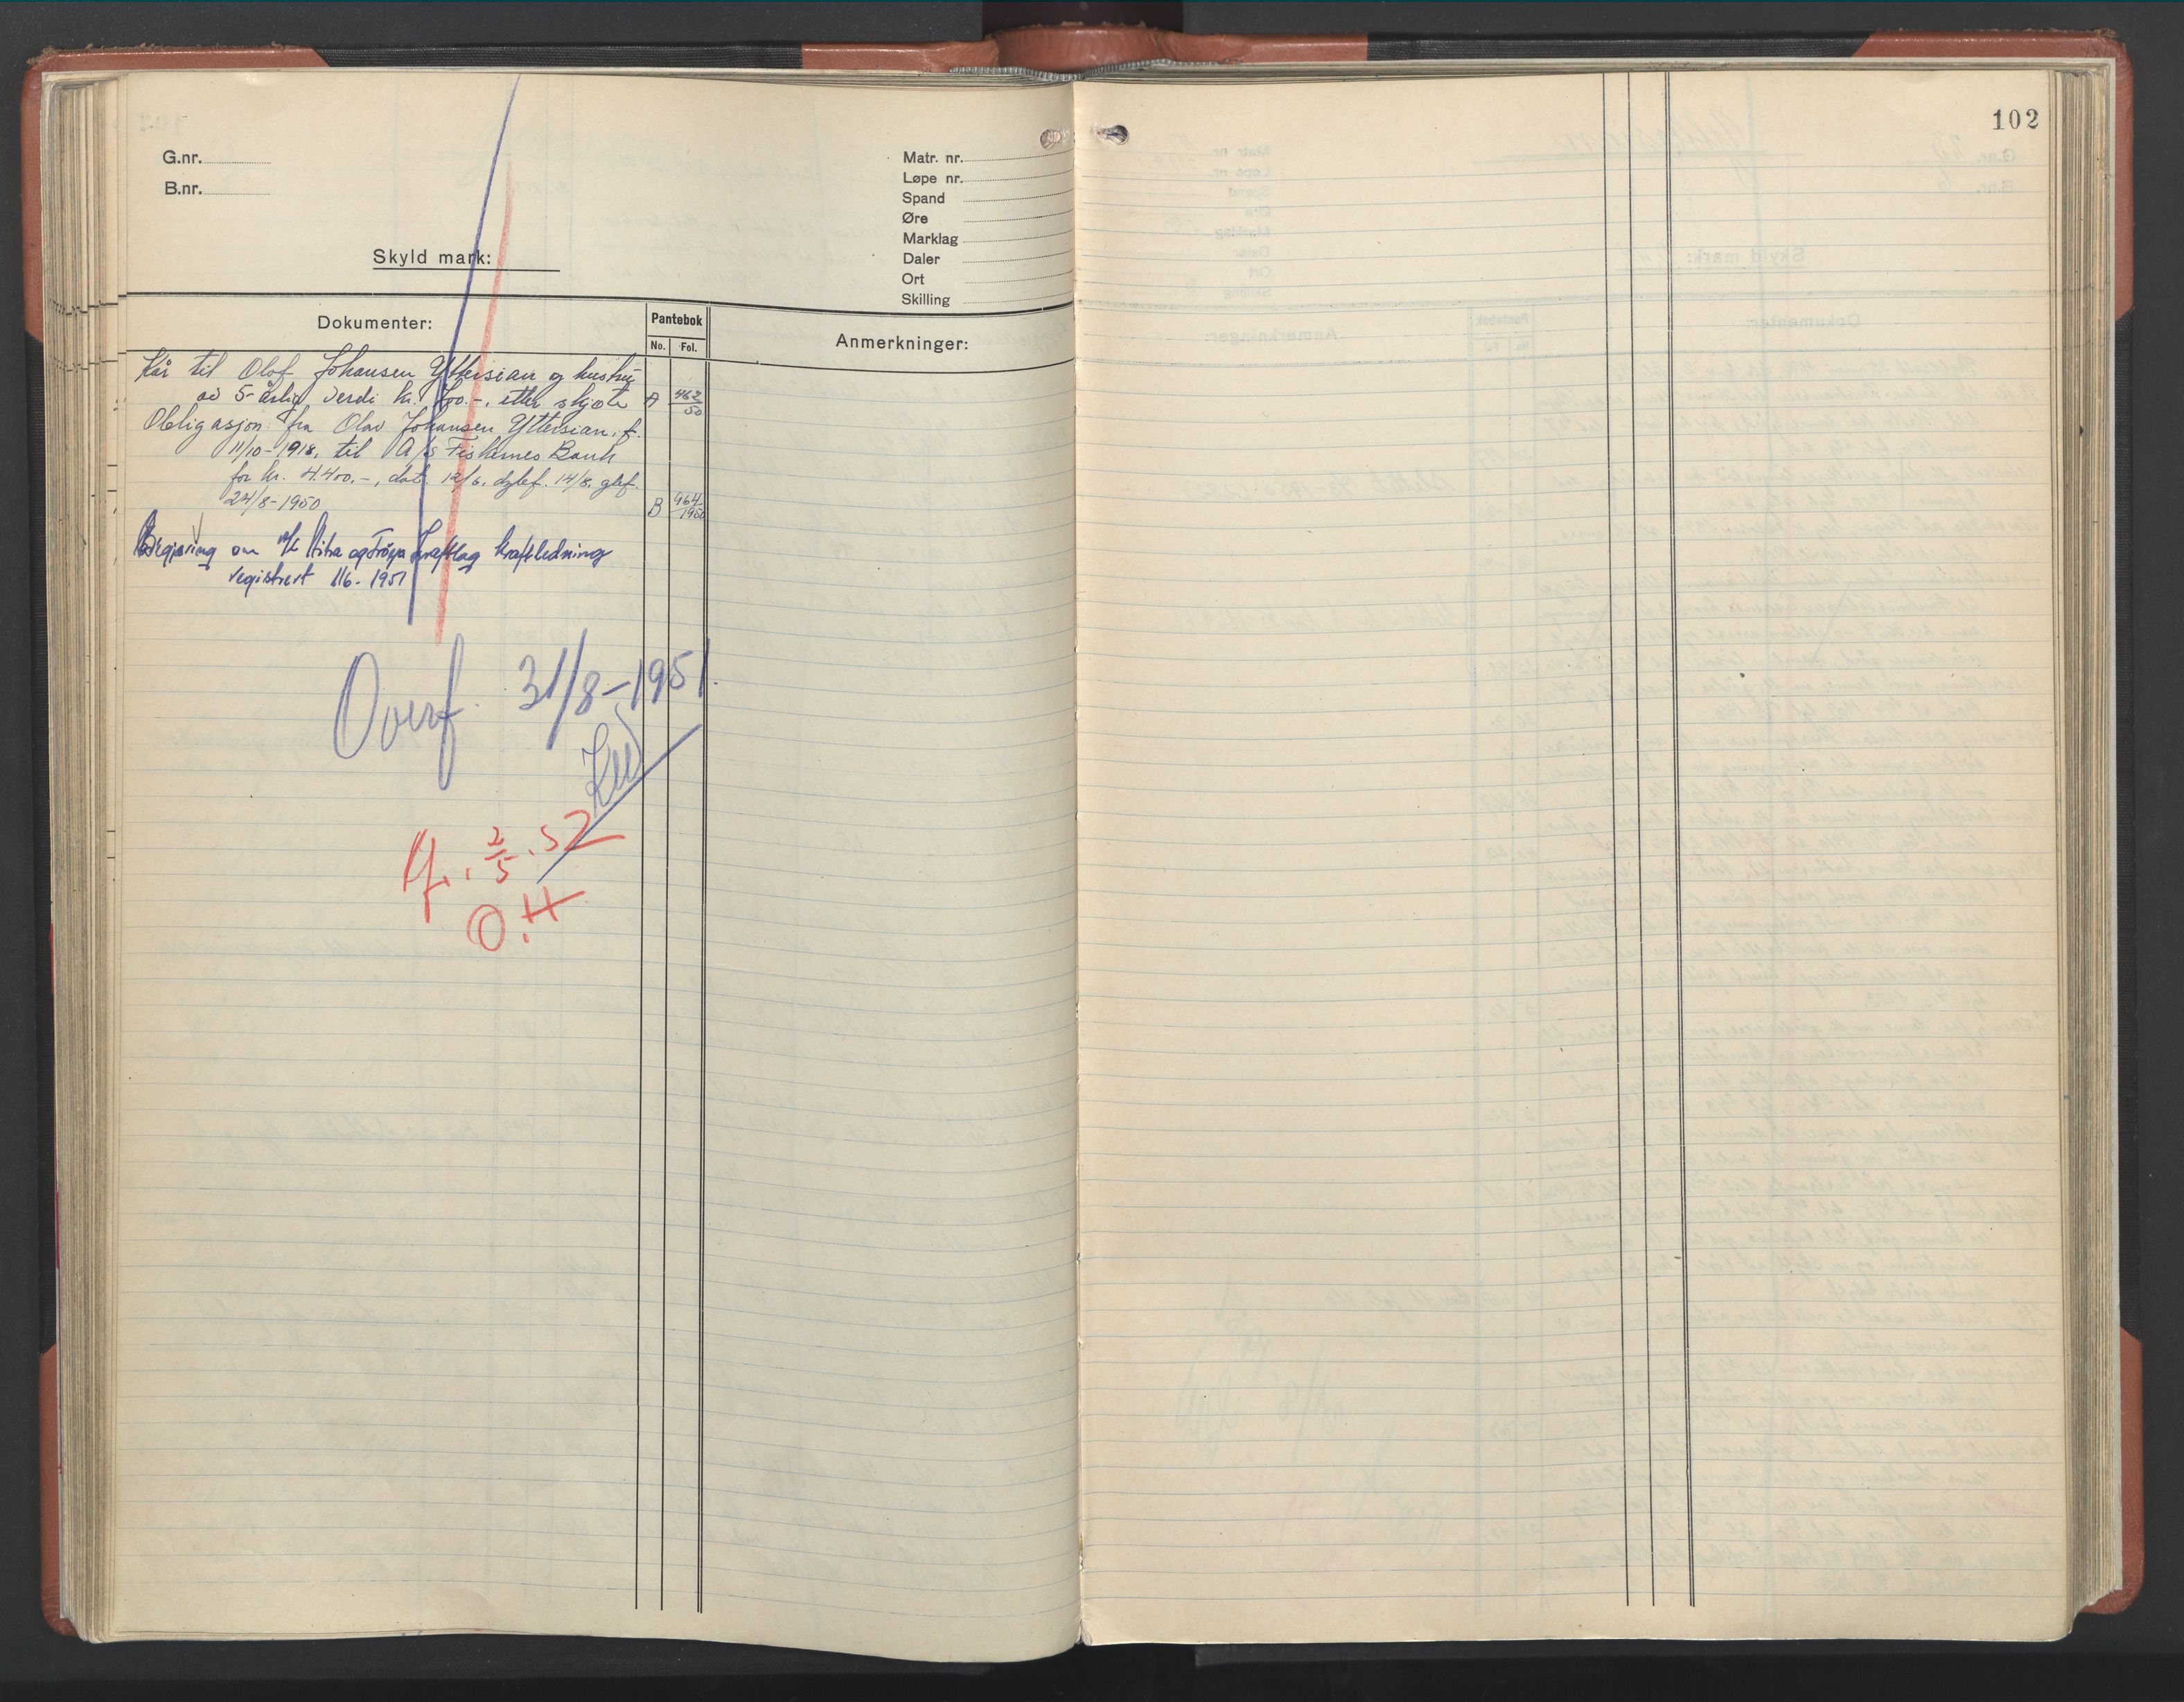 102
G.nr.
B.nr.
Matr. nr.
Løpe nr.
Spand
Øre
Marklag
Daler
Ort
Skilling
Skyld mark:
Dokumenter:
Pantebok
No. Fol.
Anmerkninger:
Kår til Olof Johansen Yttersian og hustru
av 5-årlig verdi kr. 700.-, etter skjøte A 462/50
Obligasjon fra Olav Johansen Yttersian, f.
11/10-1918, til A/S Fiskernes Bank
for kr. 4.400.-, dat. 12/6, dglef. 14/8, glef.
24/8-1950 B 964/1950
Begjæring om Hitra og Frøya Kraftlag kraftledning
registrert 1/6-1951
Overf. 31/8-1951.
2/5.52
O.H